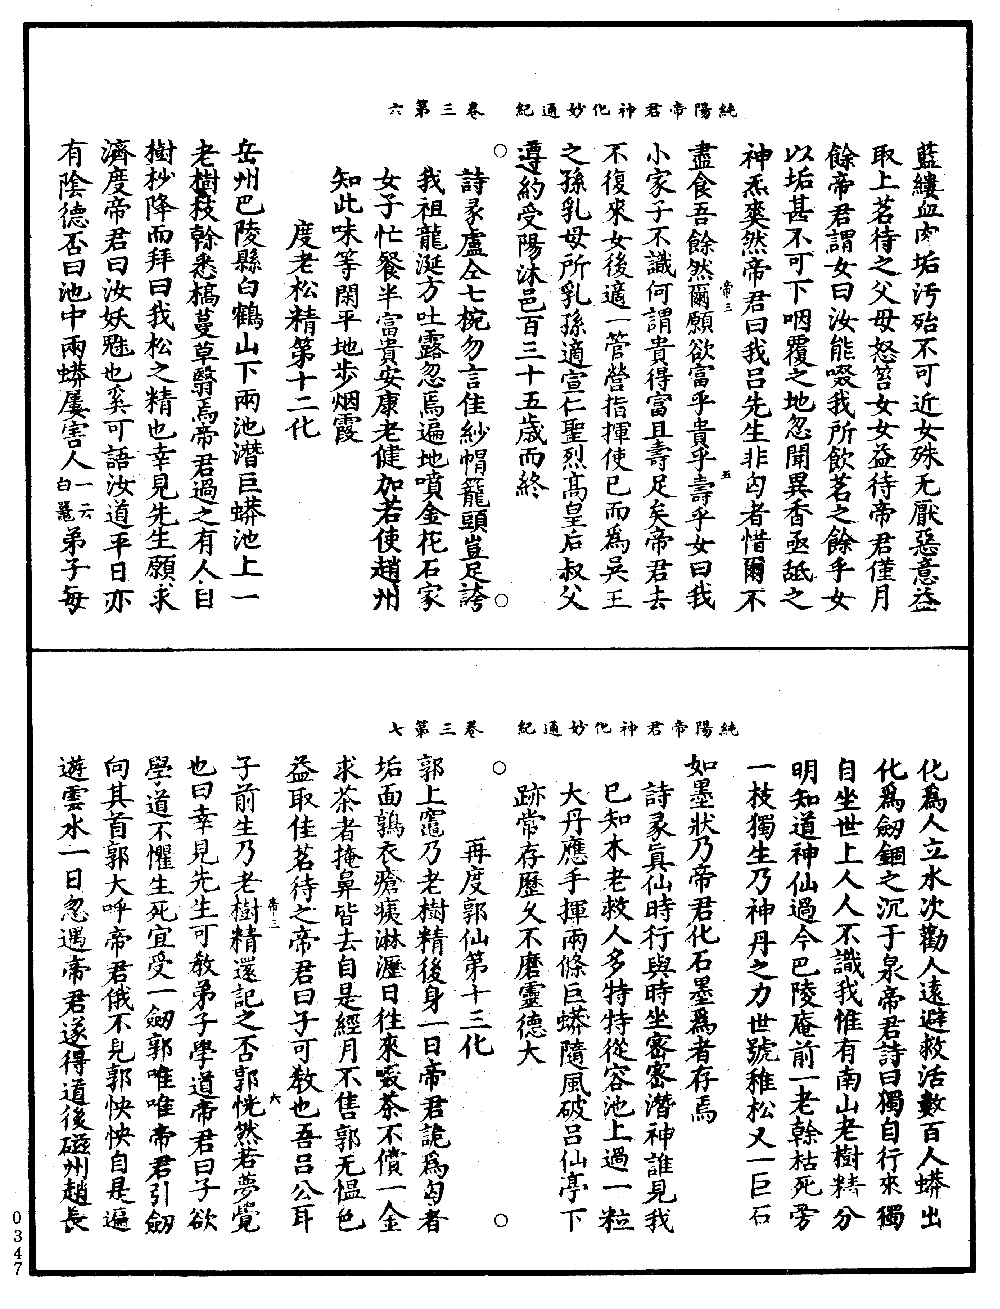 純陽帝君神化妙通紀　卷三第六
藍縷血肉垢汚殆不可近女殊无厭惡意益
取上茗待之父母怒笞女女益待帝君僅月
餘帝君謂女曰汝能啜我所飲茗之餘乎女
以垢甚不可下咽覆之地忽聞異香亟舐之
神炁爽然帝君曰我呂先生非匃者惜爾不
盡食吾餘然爾願欲富乎貴乎壽乎女曰我
帝三
五
小家子不識何謂貴得富且壽足矣帝君去
不復來女後適一管營指揮使已而爲吳王
之孫乳母所乳孫適宣仁聖烈高皇后叔父
遵約受陽沐邑百三十五歲而終
詩彖盧仝七椀勿言佳紗帽籠頭豈足誇
我祖龍涎方吐露忽焉遍地噴金花石家
女子忙餐半富貴安康老健加若使趙州
知此味等閑平地步烟霞
度老松精第十二化
岳州巴陵縣白鶴山下兩池潛巨蟒池上一
老樹枝榦悉槁蔓草翳焉帝君過之有人自
樹杪降而拜曰我松之精也幸見先生願求
濟度帝君曰汝妖魅也奚可語汝道平日亦
有陰德否曰池中兩蟒屢害人一云白鼉弟子每
純陽帝君神化妙通紀　卷三第七
化爲人立水次勸人遠避救活數百人蟒出
化爲劒錮之沉于泉帝君詩曰獨自行來獨
自坐世上人人不識我惟有南山老樹精分
明知道神仙過今巴陵庵前一老榦枯死旁
一枝獨生乃神丹之力世號稚松又一巨石
如墨狀乃帝君化石墨爲者存焉
詩彖真仙時行與時坐密密潛神誰見我
巳知木老救人多特特從容池上過一粒
大丹應手揮兩條巨蟒隨風破呂仙亭下
跡常存歷久不磨靈德大
再度郭仙第十三化
郭上竈乃老樹精後身一日帝君詭爲匃者
垢面鶉衣瘡痍淋瀝日往來啜茶不償一金
求茶者掩鼻皆去自是經月不售郭无慍色
益取佳茗待之帝君曰子可教也吾呂公耳
帝三
六
子前生乃老樹精還記之否郭恍然若夢覺
也曰幸見先生可教弟子學道帝君曰子欲
學道不懼生死宜受一劒郭唯唯帝君引劒
向其首郭大呼帝君俄不見郭怏怏自是遍
遊雲水一日忽遇帝君遂得道後磁州趙長
0347